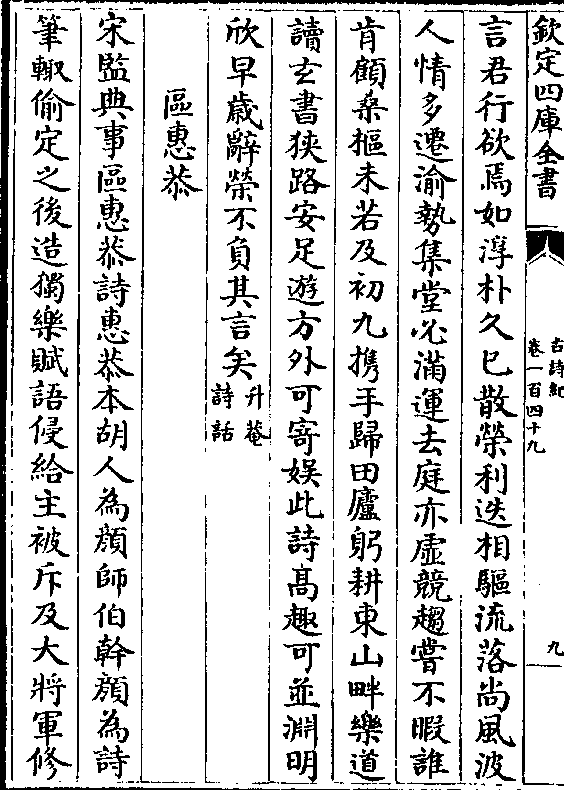 欽定四庫全書
古詩紀
卷一百四十九
九
言君行欲焉如淳朴久已散榮利迭相驅流落尚風波
人情多遷渝勢集堂必滿運去庭亦虛競趨嘗不暇誰
肯顧桑樞未若及初九携手歸田廬躬耕東山畔樂道
讀玄書狹路安足遊方外可寄娱此詩髙趣可並淵明
欣早歲辭榮不負其言矣升菴詩話
區惠恭
宋監典事區惠恭詩惠恭本胡人為顔師伯幹顔為詩
筆輙偷定之後造獨樂賦語侵給主被斥及大將軍修